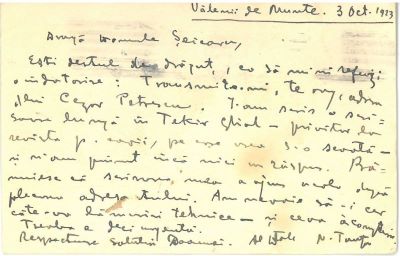 Vălenii de Munte. 3 Oct. 1923
Dragă Domnule Șeicaru,
Ești destul de drăguț, ca să nu-mi refuzi
o îndatorire: Transmite-mi, te rog, adresa
d-lui Cezar Petrescu. I-am scris o scri-
soare lungă în Tekir Ghiol – privitor la
revista p. copii, pe care vrea s-o scoată –
și n-am primit încă nici un răspuns. Bă-
nuiesc că scrisoarea mea a ajuns acolo după
plecarea adresantului. Am nevoie să-i cer
câte-va lămuriri tehnice – și ceva
Treaba e deci urgentă.
Respectuoase salutări Doamnei. Al D-tale N.